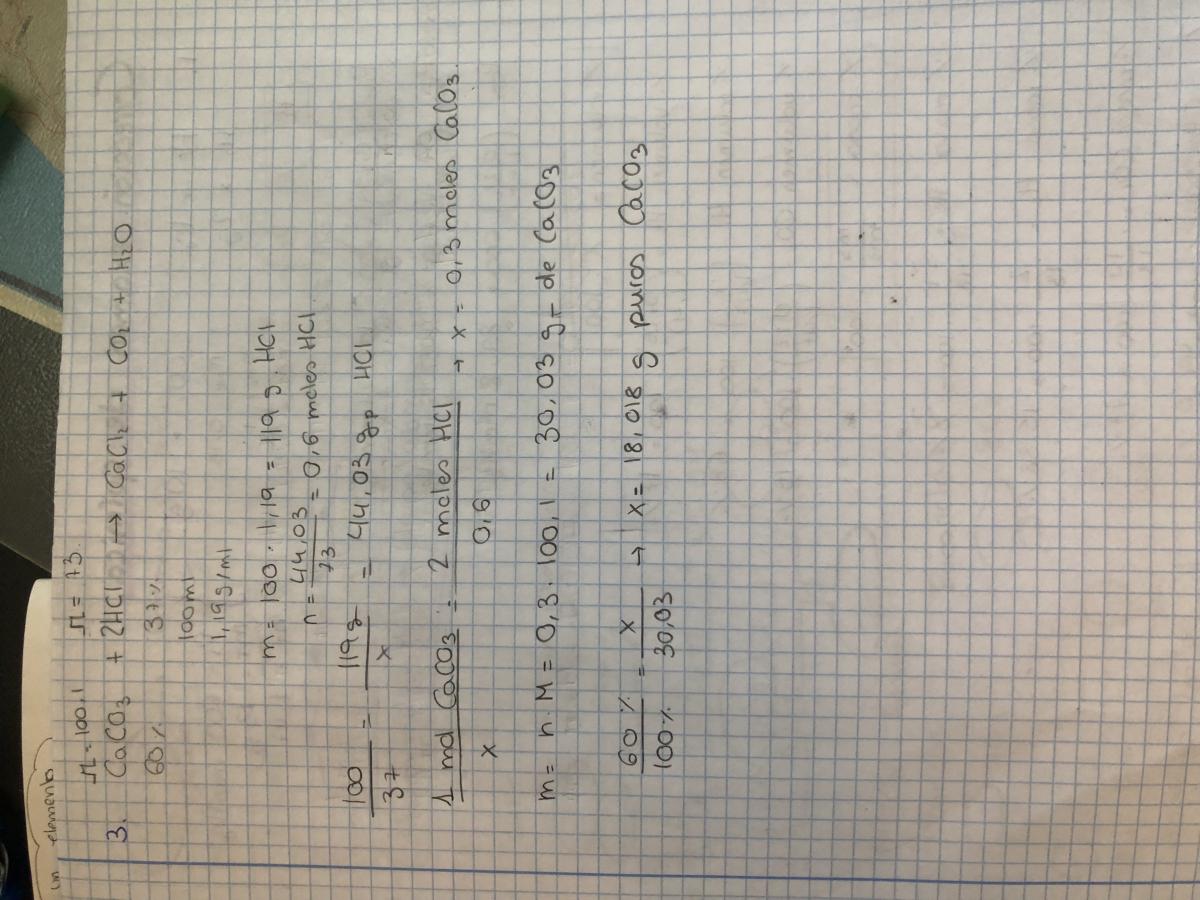 im elements
M=100,1 M=73.
3. CaCO3 + 2HCl → CaCl2 + CO2 + H2O
60% 37%
100ml
1,19g/ml
m = 100 · 1,19 = 119 g. HCl
n = 44,03/73 = 0,6 moles HCl
100/37 = 119g/x = 44,03 gr HCl
1 mol CaCO3/x = 2 moles HCl/0,6 → x = 0,3 moles CaCO3.
m = n · M = 0,3 · 100,1 = 30,03 gr de CaCO3
60%/100% = x/30,03 → x = 18,018 g puros CaCO3